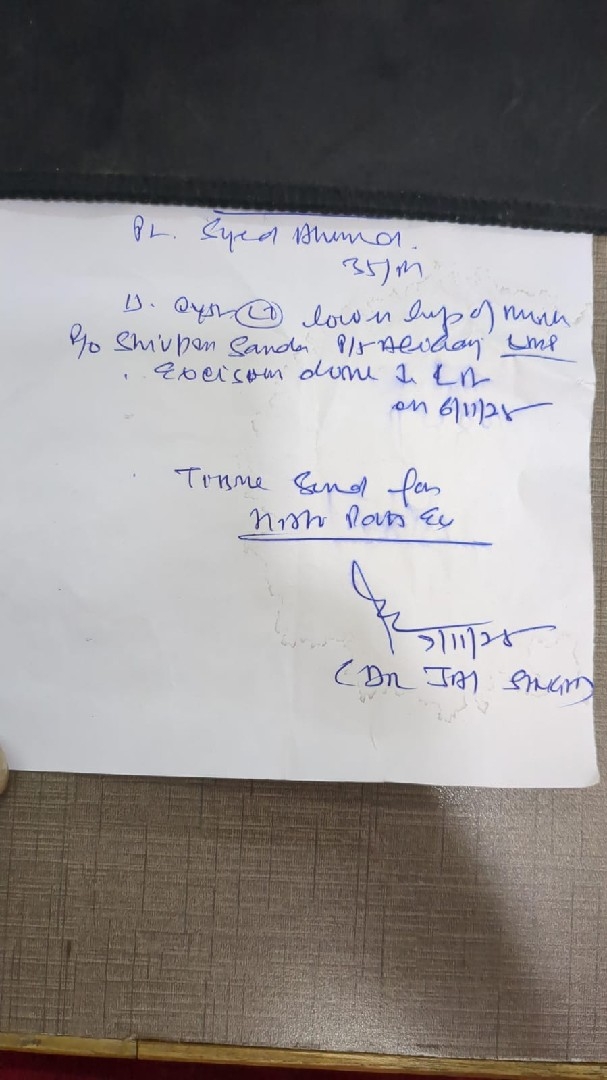 Pt. Syed Ahmad.
35/M
D. Cyst (L) lower lip of mouth
R/o Shivpuri Sanda P/S
Excision done LA
on 6/11/25
Tissue Send for
Histo Patho Ex
7/11/25
(DR JAI SINGH)